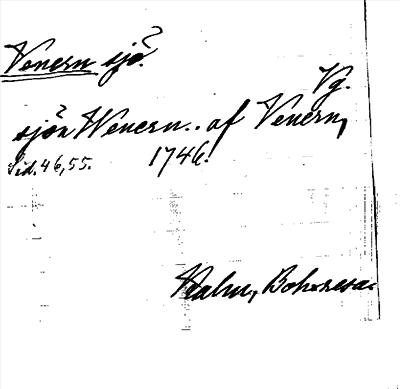 Venern sjö.
Vg.
sjön Wenern.. af Venern,
Sid. 46, 55. 1746.
Kalm, Bohusresa.